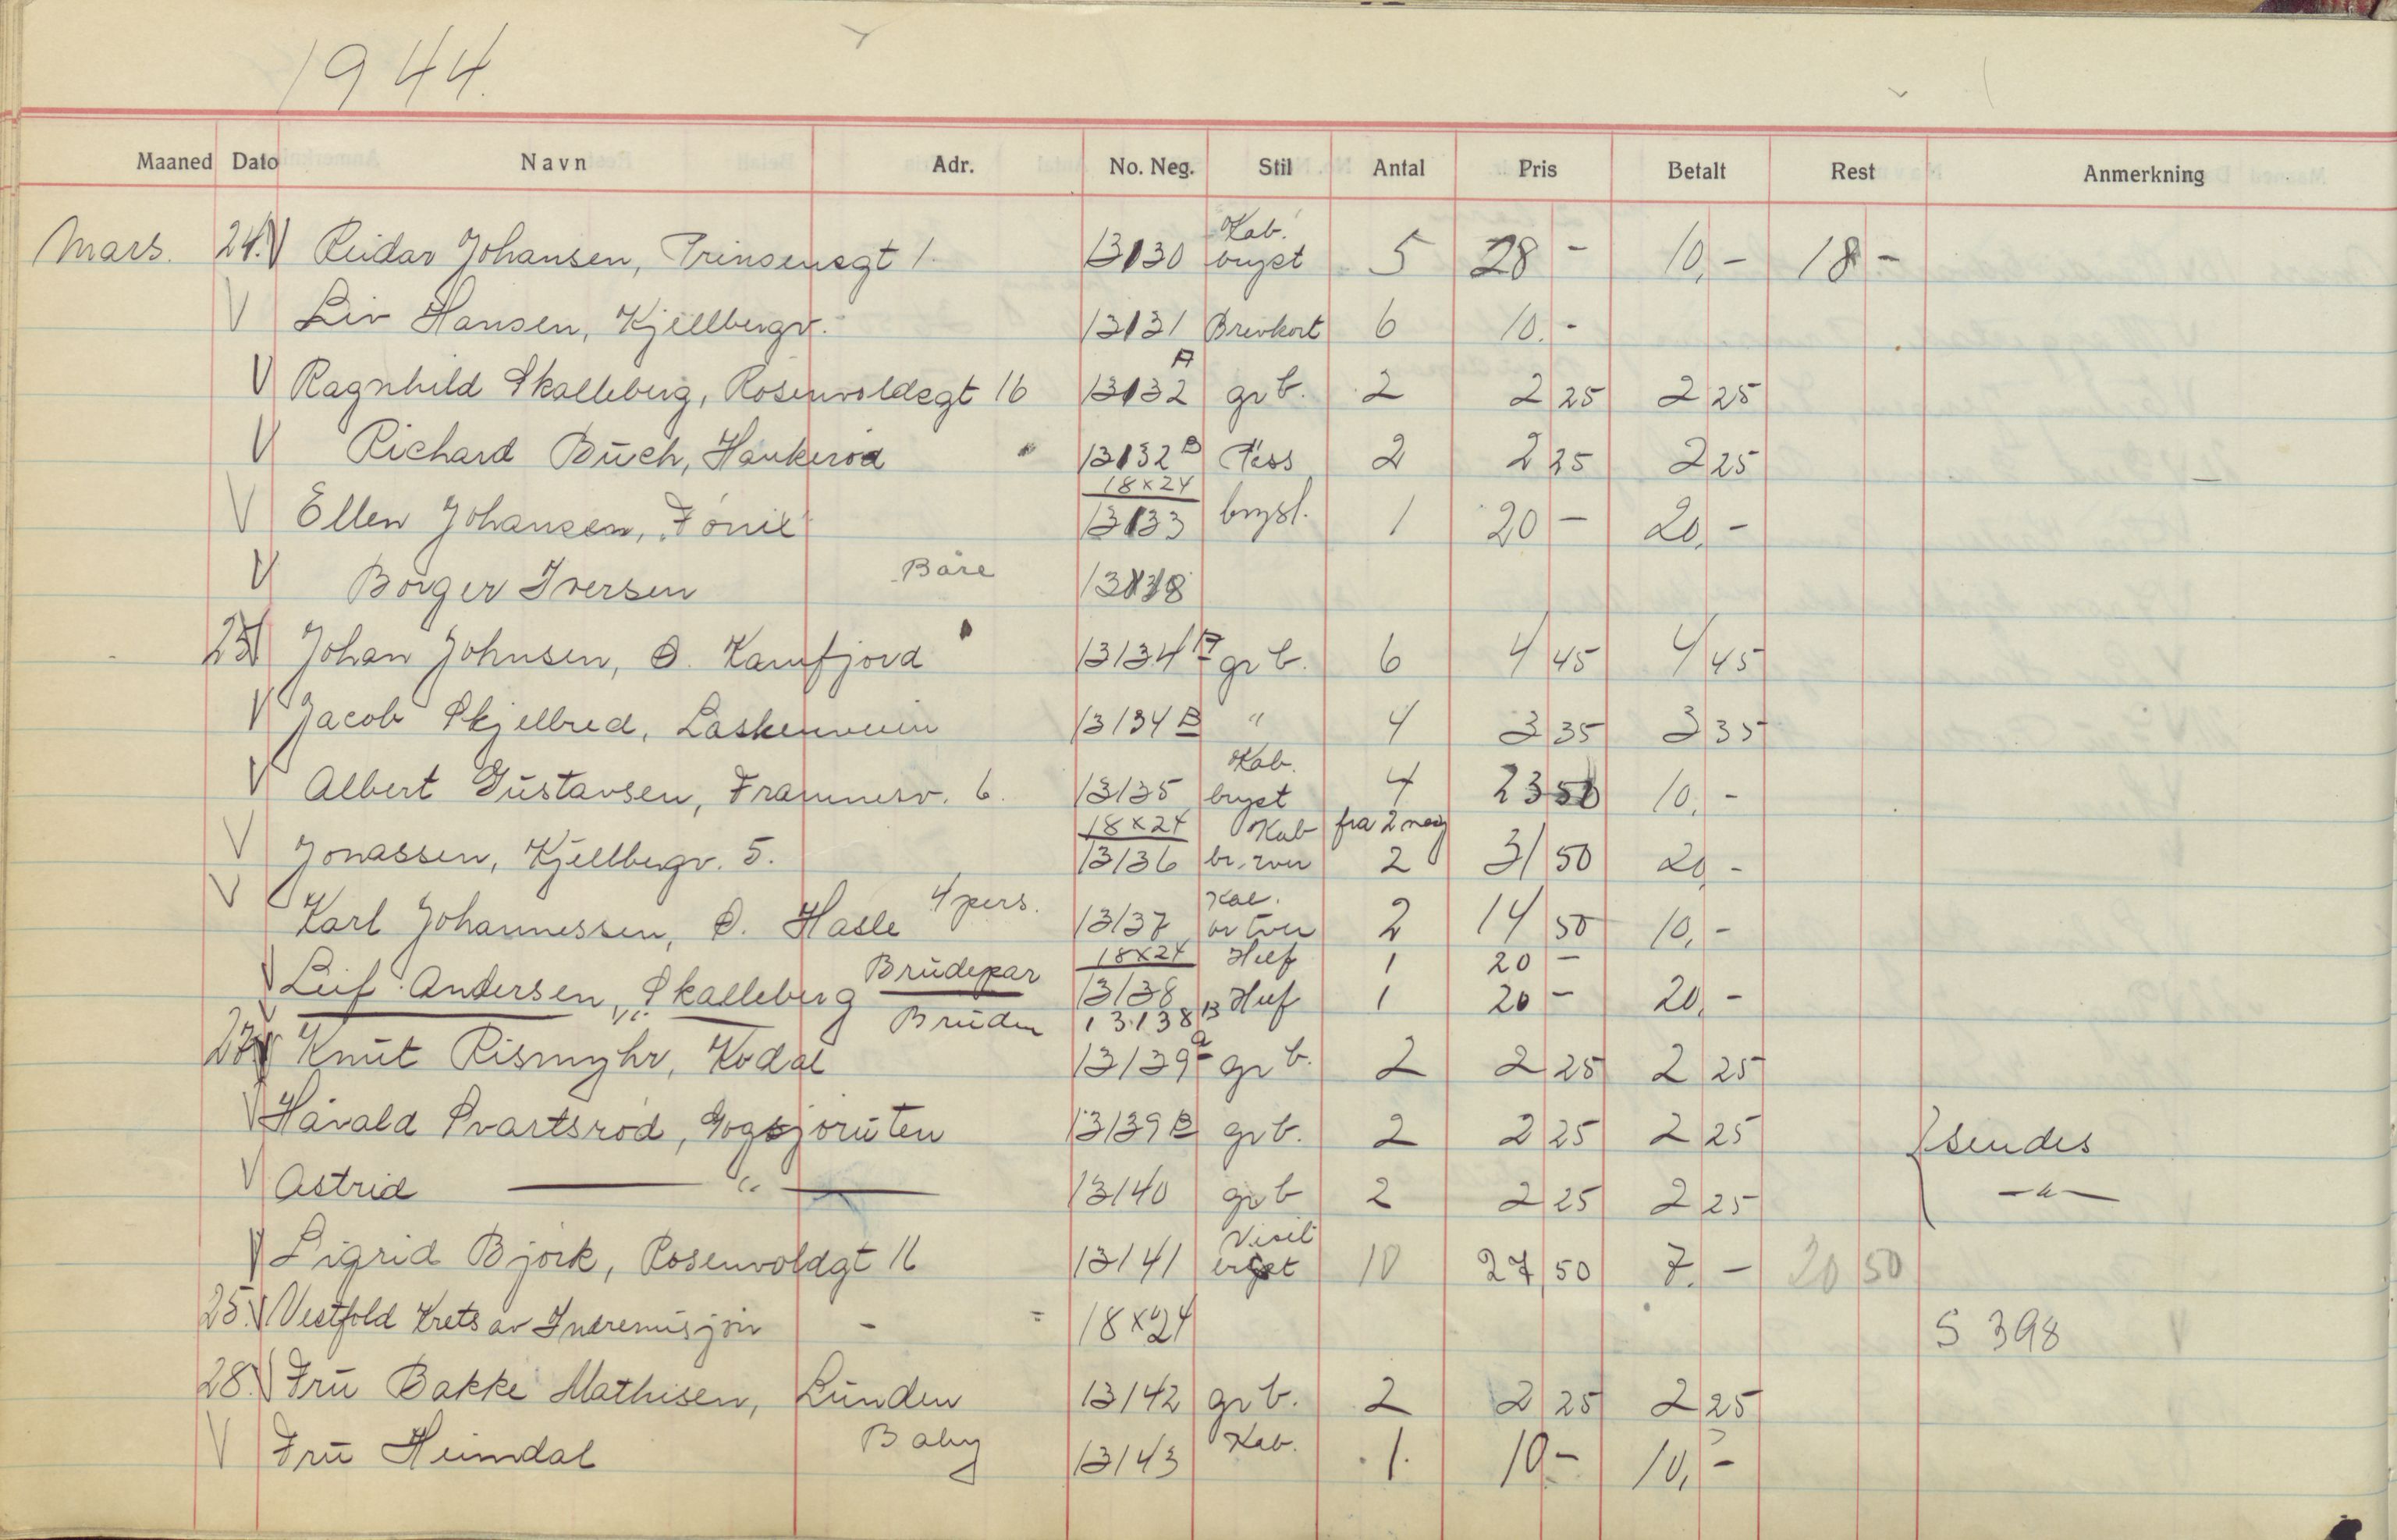 1944.
Maaned Dato Navn Adr. No. Neg. Stil Antal Pris Betalt Rest Anmerkning
Kab.
Mars. 24. V Reidar Johansen, Prinsensgt 1. 13130 bryst 5 28 - 10,- 18 -
V Liv Hansen, Kjellbergv. 13131 Brevkort 6 10.-
V Ragnhild Skalleberg, Rosenvoldsgt 16 13132 A gr b. 2 2 25 2 25
V Richard Buch, Haukerød 13132 B Pass 2 2 25 2 25
18x24
V Ellen Johansen, Fønix 13133 bryst. 1 20 - 20,-
V Borger Iversen Båre
25 V Johan Johnsen, Ø. Kamfjord 13134 A gr b. 6 4 45 4 45
V Jacob Skjelbred, Laskenveien 13134 B " 4 3 35 3 35
Kab.
V Albert Gustavsen, Framnesv. 6. 13135 bryst 4 23 50 10,-
18x24 Kab fra 2 neg
V Jonassen, Kjellbergv. 5. 13136 2 31 50 20,-
4 pers.
V Karl Johannessen, Ø. Hasle 13137 2 14 50 10,-
Brudepar 18x24 Huf 1 20 -
V Leif Andersen, Skalleberg 13138 Huf 1 20 - 20,-
Bruden 13138 B
27 V Knut Rismyhr, Kodal 13139 a gr b. 2 2 25 2 25
V Håvald Svartsrød, Gogsjøruten 13139 B gr b. 2 2 25 2 25 } sendes
V Astrid — " — 13140 gr b 2 2 25 2 25 — " —
Visit
V Sigrid Bjørk, Rosenvoldgt 16 13141 bryst 10 27 50 7.- 20 50
25. V Vestfold Krets av Indremisjon - 18x24 S 398
28. V Fru Bakke Mathisen, Lunden 13142 gr b. 2 2 25 2 25
V Fru Heimdal Baby 13143 Kab. 1. 10.- 10,-